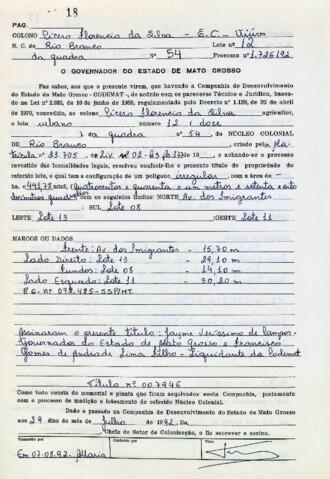 18
PAG.
COLONO Cícero Florencio da Silva - E.C - Viúvo
N. C. de Rio Branco Lote nº 12
da quadra Nº 54 Processo 1.726/92
O GOVERNADOR DO ESTADO DE MATO GROSSO
Faz saber, aos que a presente virem, que havendo a Companhia de Desenvolvimento
do Estado de Mato Grosso - CODEMAT -, de acôrdo com os pareceres Técnico e Jurídico, basea-
dos na Lei nº 2.035, de 10 de junho de 1968, regulamentada pelo Decreto nº 1.138, de 20 de abril
de 1970, concedido, ao colono Cícero Florencio da Silva agricultor,
o lote urbano número 12 (doze
) da quadra nº 54, DO NÚCLEO COLONIAL
DE Rio Branco, criado pela,
, e achando-se o processo
revestido das formalidades legais, resolveu conferir-lhe o presente título de propriedade do
referido lote, o qual tem a configuração de um polígono irregular, com a área de -
441,78 mts2, (Quatrocentos e quarenta e um metros e setenta e oito
decímetros quadrados) com os seguintes limites: NORTE Av. dos Imigrantes
SUL Lote 08
LESTE Lote 13 OESTE Lote 11
MARCOS OU DADOS
Frente: Av. dos Imigrantes - 15,70 m
Lado Direito: Lote 13 - 29,10 m
Fundos: Lote 08 - 14,10 m
Lado Esquerdo: Lote 11 - 30,20 m
R.G. nº 072.425-SSP/MT.
Assinaram o presente Título: Jayme Veríssimo de Campos-
Governador do Estado de Mato Grosso e Francisco
Gomes de Andrade Lima Filho - Liquidante da Codemat.
Título nº 007946
Como tudo consta do memorial e planta que ficam arquivados nesta Companhia, juntamente
com o processo de medição e loteamento do referido Núcleo Colonial.
Dado e passado na Companhia de Desenvolvimento do Estado de Mato Grosso
aos 29 dias do mês de Julho de 1992. Eu,
Chefe do Setor de Colonização, o fiz escrever e assino.
Transcrito por Conferido por Visto
Em 07.08.92